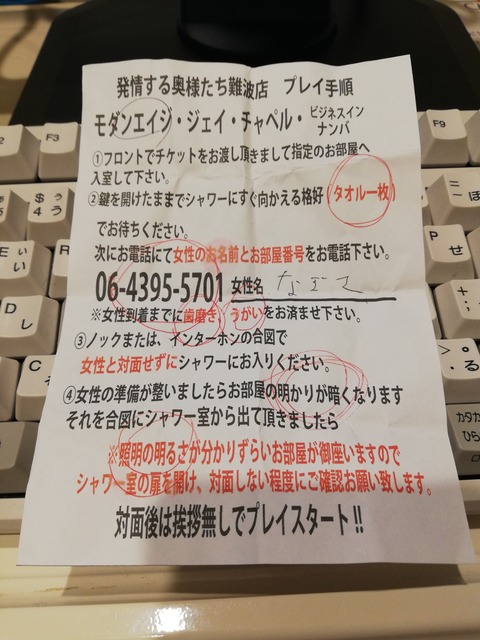 発情する奥様たち難波店 プレイ手順
モダンエイジ・ジェイ・チャペル・ビジネスインナンバ
①フロントでチケットをお渡し頂きまして指定のお部屋へ
入室して下さい。
②鍵を開けたままでシャワーにすぐ向かえる格好(タオル一枚)
でお待ちください。
次にお電話にて女性のお名前とお部屋番号をお電話下さい。
06-4395-5701 女性名
※女性到着までに歯磨き、うがいをお済ませ下さい。
③ノックまたは、インターホンの合図で
女性と対面せずにシャワーにお入りください。
④女性の準備が整いましたらお部屋の明かりが暗くなります
それを合図にシャワー室から出て頂きましたら
※照明の明るさが分かりずらいお部屋が御座いますので
シャワー室の扉を開け、対面しない程度にご確認お願い致します。
対面後は挨拶無しでプレイスタート!!
F3
F9
$
う
4
E
い
R
D
し
C
P
せ
+
;
れ
>
。
る
カタカ
ひら